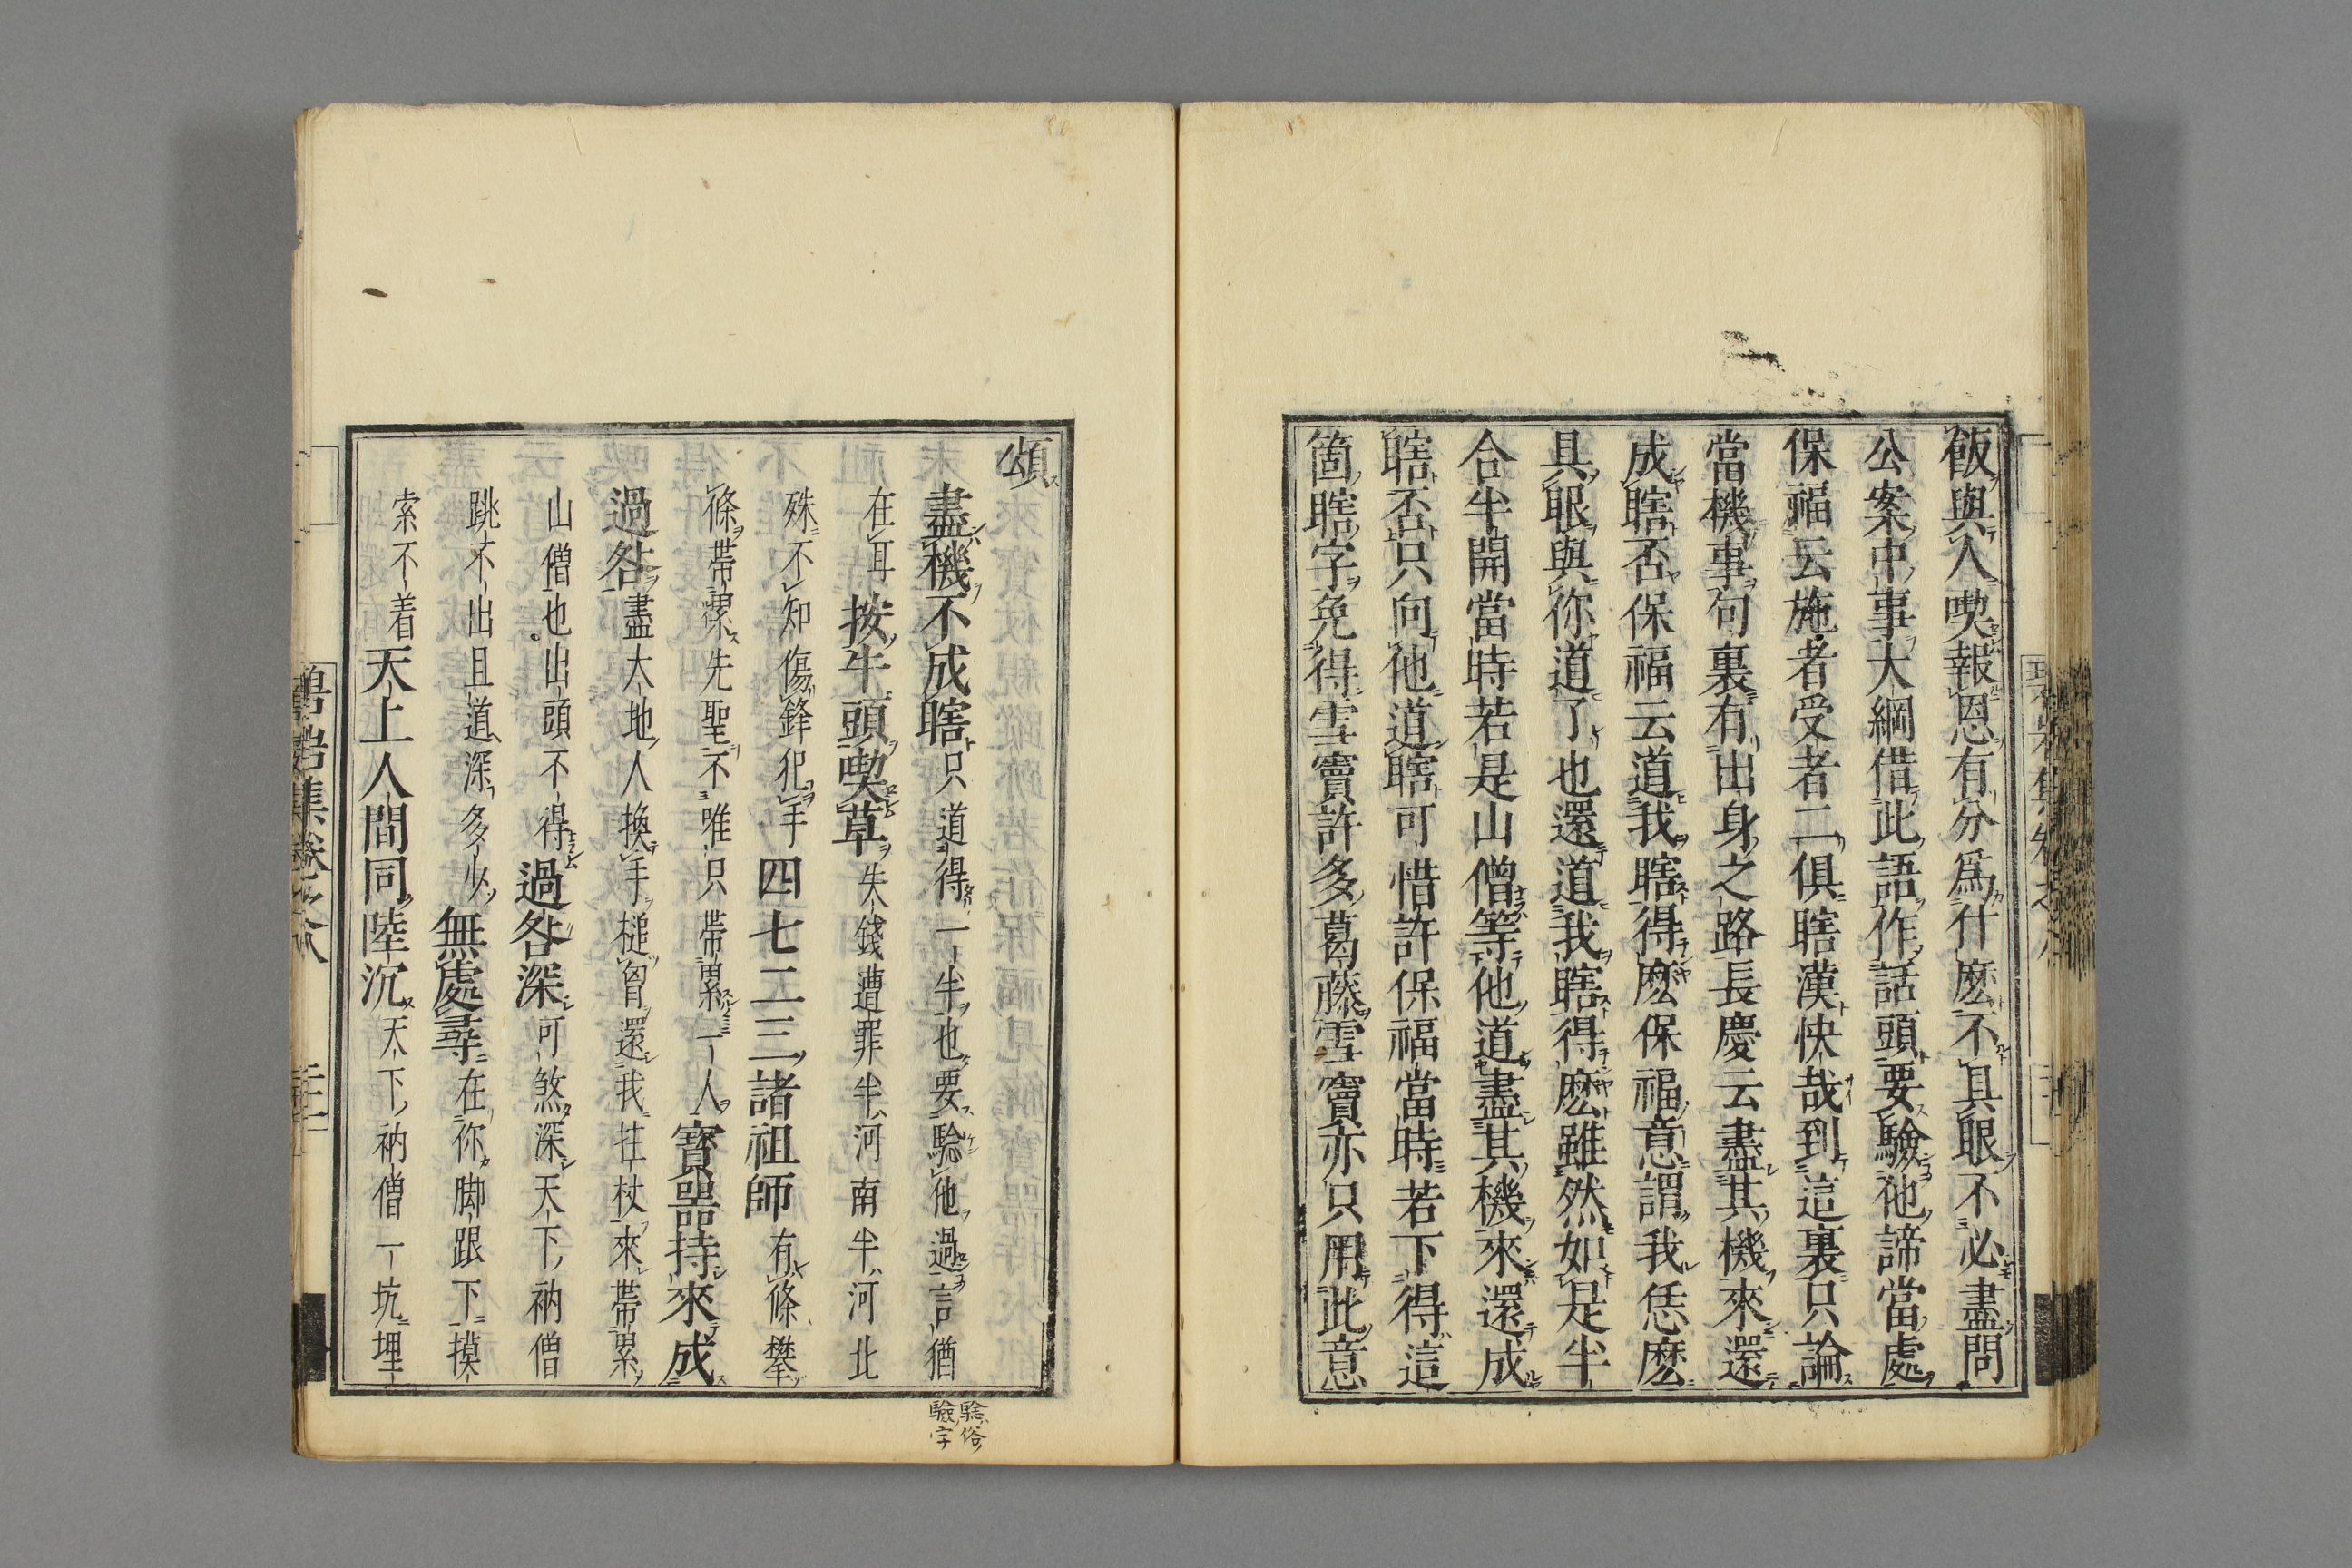 飯與人喫報恩有分爲什麽不具眼不必盡問
公案中事大綱借此語作話頭要驗他諦當處
保福云施者受者二俱瞎漢快哉到這裏只論
當機事句裏有出身之路長慶云盡其機來還
成瞎否保福云道我瞎得麽保福意謂我恁麽
具眼與你道了也還道我瞎得麽雖然如是半
合半開當時若是山僧等他道盡其機來還成
瞎否只向他道瞎可惜許保福當時若下得這
箇瞎字免得雪竇許多葛藤雪竇亦只用此意
頌
盡機不成瞎只道得一半也要騐他過言猶
在耳按牛頭喫草失錢遭罪半河南半河北
殊不知傷鋒犯手四七二三諸祖師有條攀
條帶累先聖不唯只帶累一人寶器持來成
過咎盡大地人換手槌胷還我拄杖來帶累
山僧也出頭不得過咎深可煞深天下衲僧
跳不出且道深多少無處尋在你脚跟下摸
索不着天上人間同陸沉天下衲僧一坑埋
騐俗
驗字
碧岩集卷之八